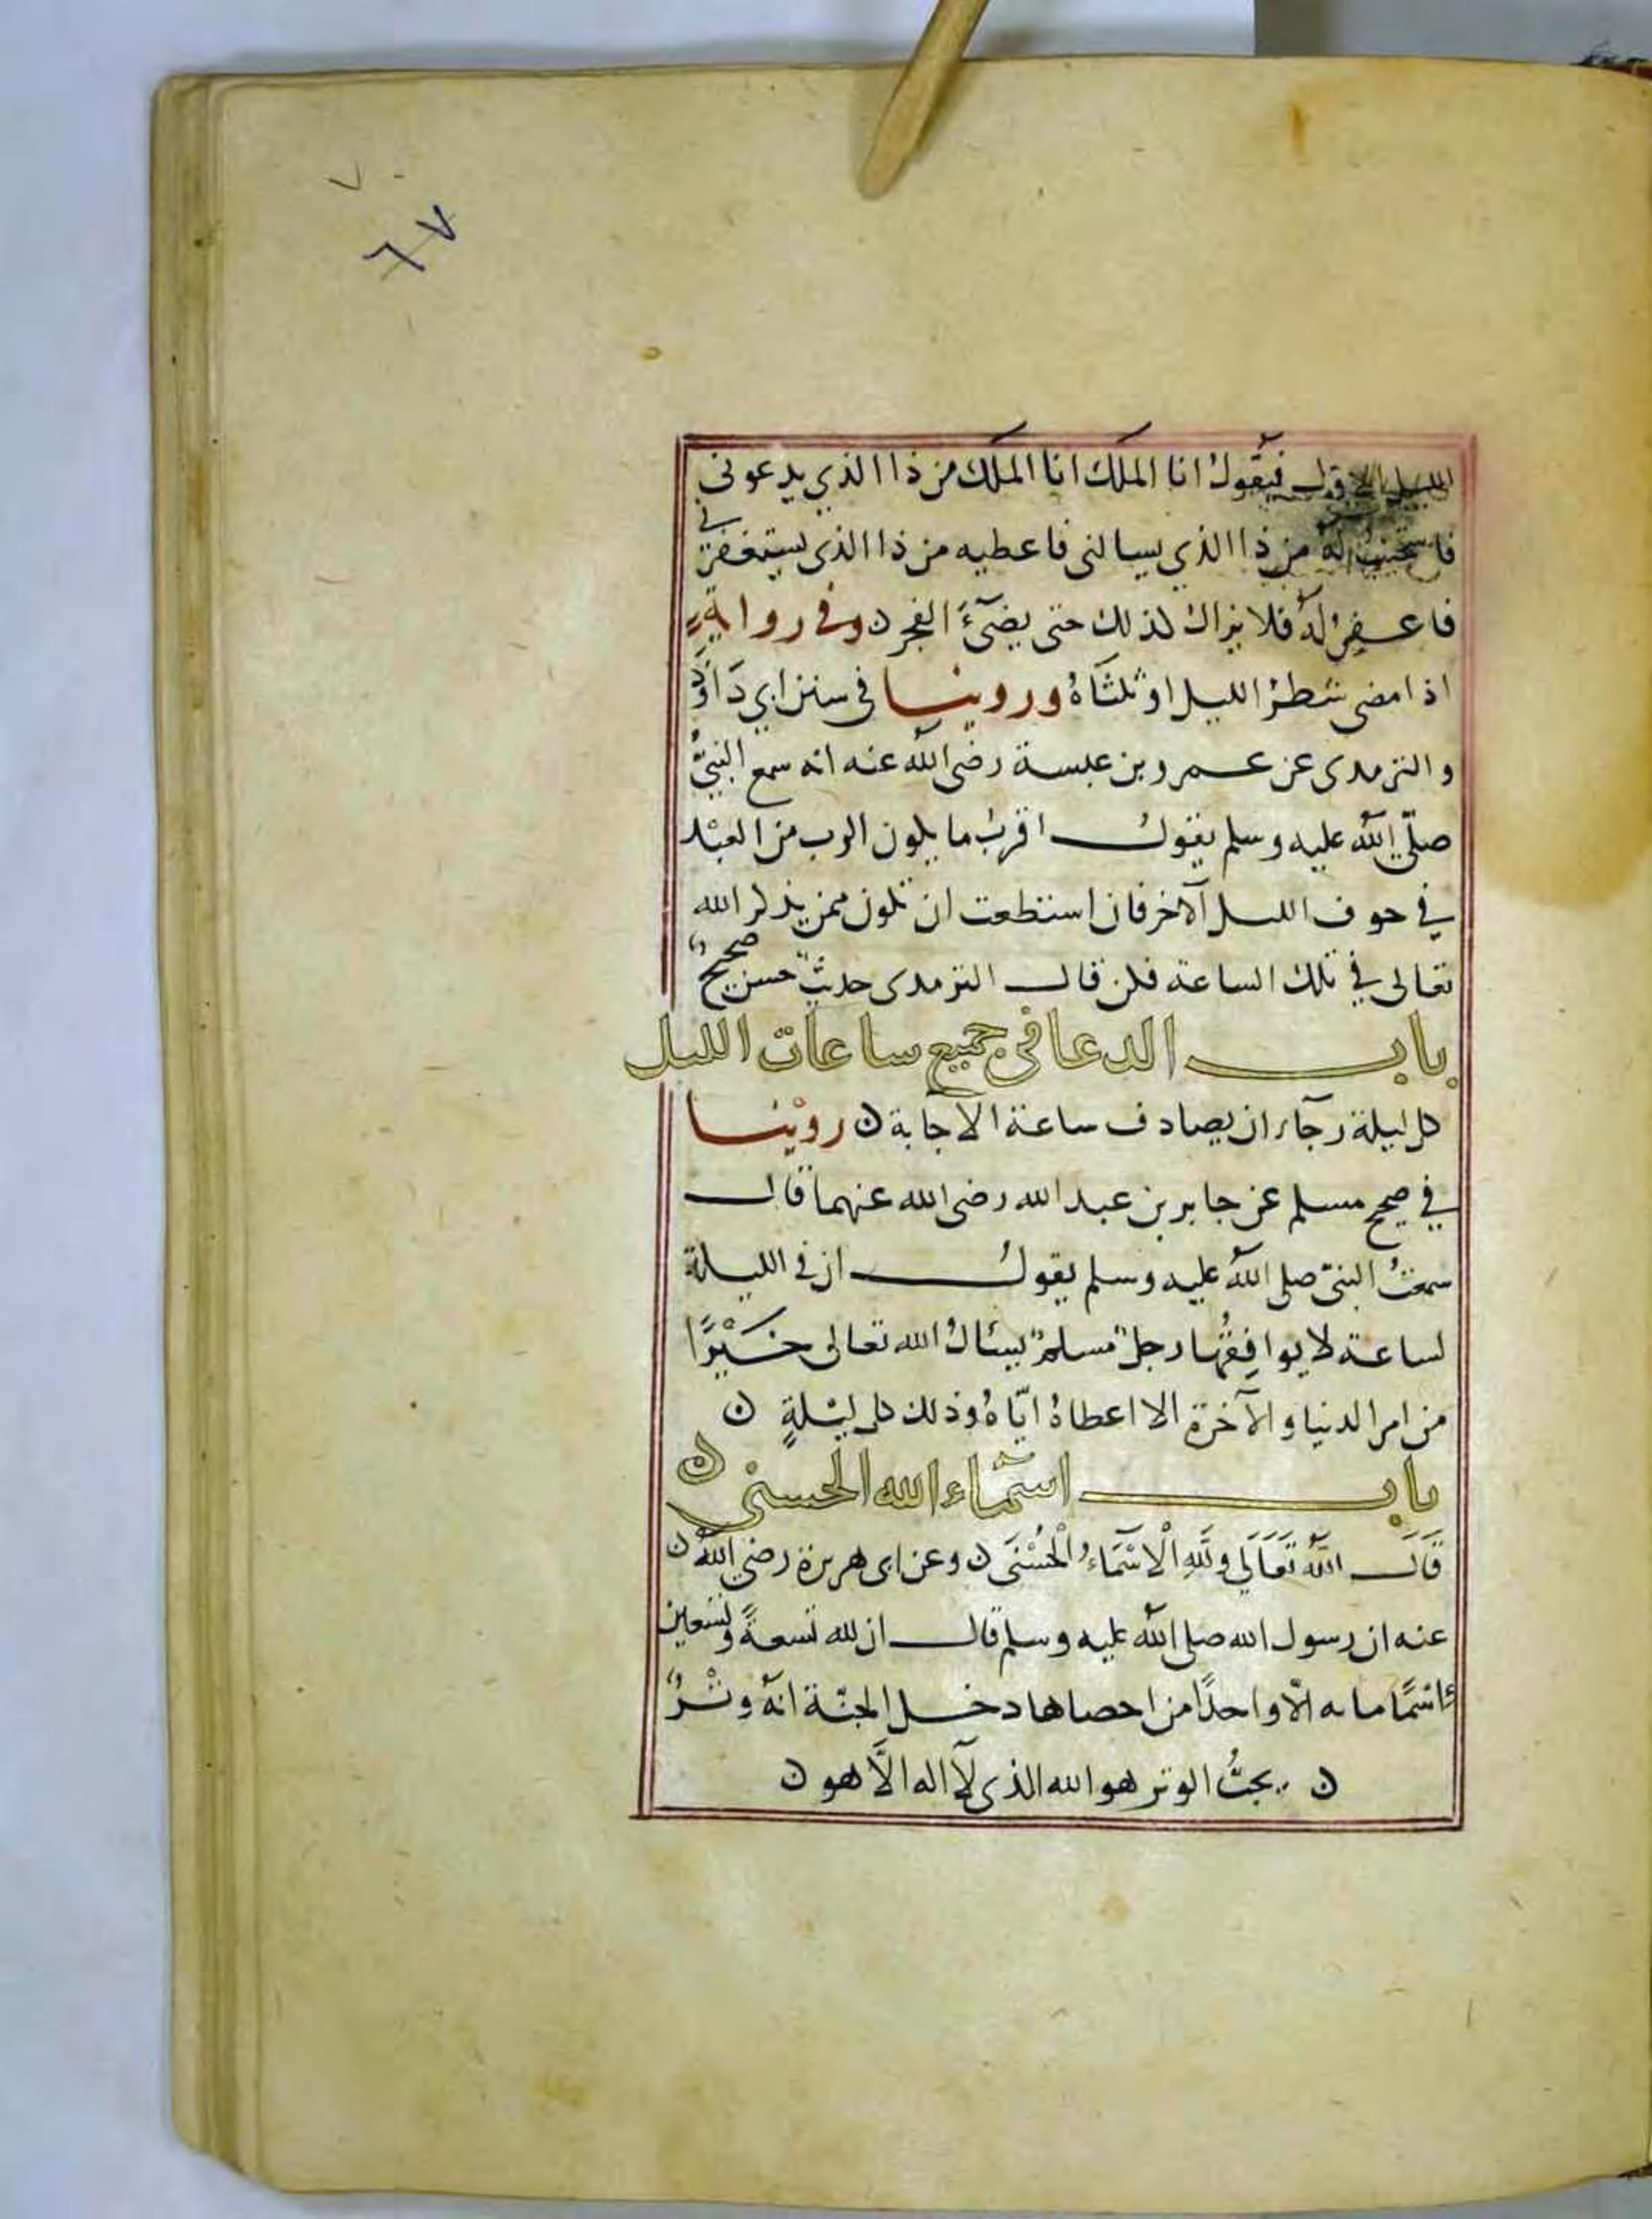 ٧٠
٦٧
الليل الاول فيقولُ انا الملك انا الملك من ذا الذي يدعونى
فاستجيبُ له من ذا الذي يسالنى فاعطيه من ذا الذى يستغفرنى
فاعفرُ لهُ فلا يزال كذلك حتى يضىَٓءَ الفجر ن وفى رواية
اذا مضى شطرُ الليل او ثلثاهُ وروينا فى سنن ابي داوُد
والترمدى عن عمرو بن عبسة رضى الله عنه انه سمع النبىَّ
صلّى الله عليه وسلم يقولُ اقربُ ما يكون الرب من العبْد
في حوف الليل الآخر فان استطعت ان تكون ممن يذكر الله
تعالى في تلك الساعة فكن قال الترمدى حديثٌ حسن صحيحٌ
باب الدعا فى جميع ساعات الليل
كل ليلة رجآء ان يصادف ساعة الاجابة ن روينا
في صحيح مسلم عن جابر بن عبد الله رضى الله عنهما قال
سمعتُ النبىّ صلى الله عليه وسلم يقولُ ان فى الليلة
لساعة لا يوافِقُها رجلٌ مسلمٌ يسئالُ الله تعالى خَيْرًا
من امر الدنيا والآخرة الا اعطاهُ ايّاهُ وذلك كل ليْلةٍ ن
باب اسماء الله الحسنى ن
قَالَ اللهُ تَعَالَى وَلِلَّهِ الْاَسْمَاءُ الْحُسْنَى ن وعن ابى هريرة رضى اللهُ ن
عنه ان رسول الله صلى الله عليه وسلم قال ان لله تسعةً وتسعين
اسْمًا مايه الّا واحدًا من احصاها دخل الجنّة انهُ وتْرٌ
ن يحبُّ الوتر هو الله الذى لآ اله الَّا هو ن